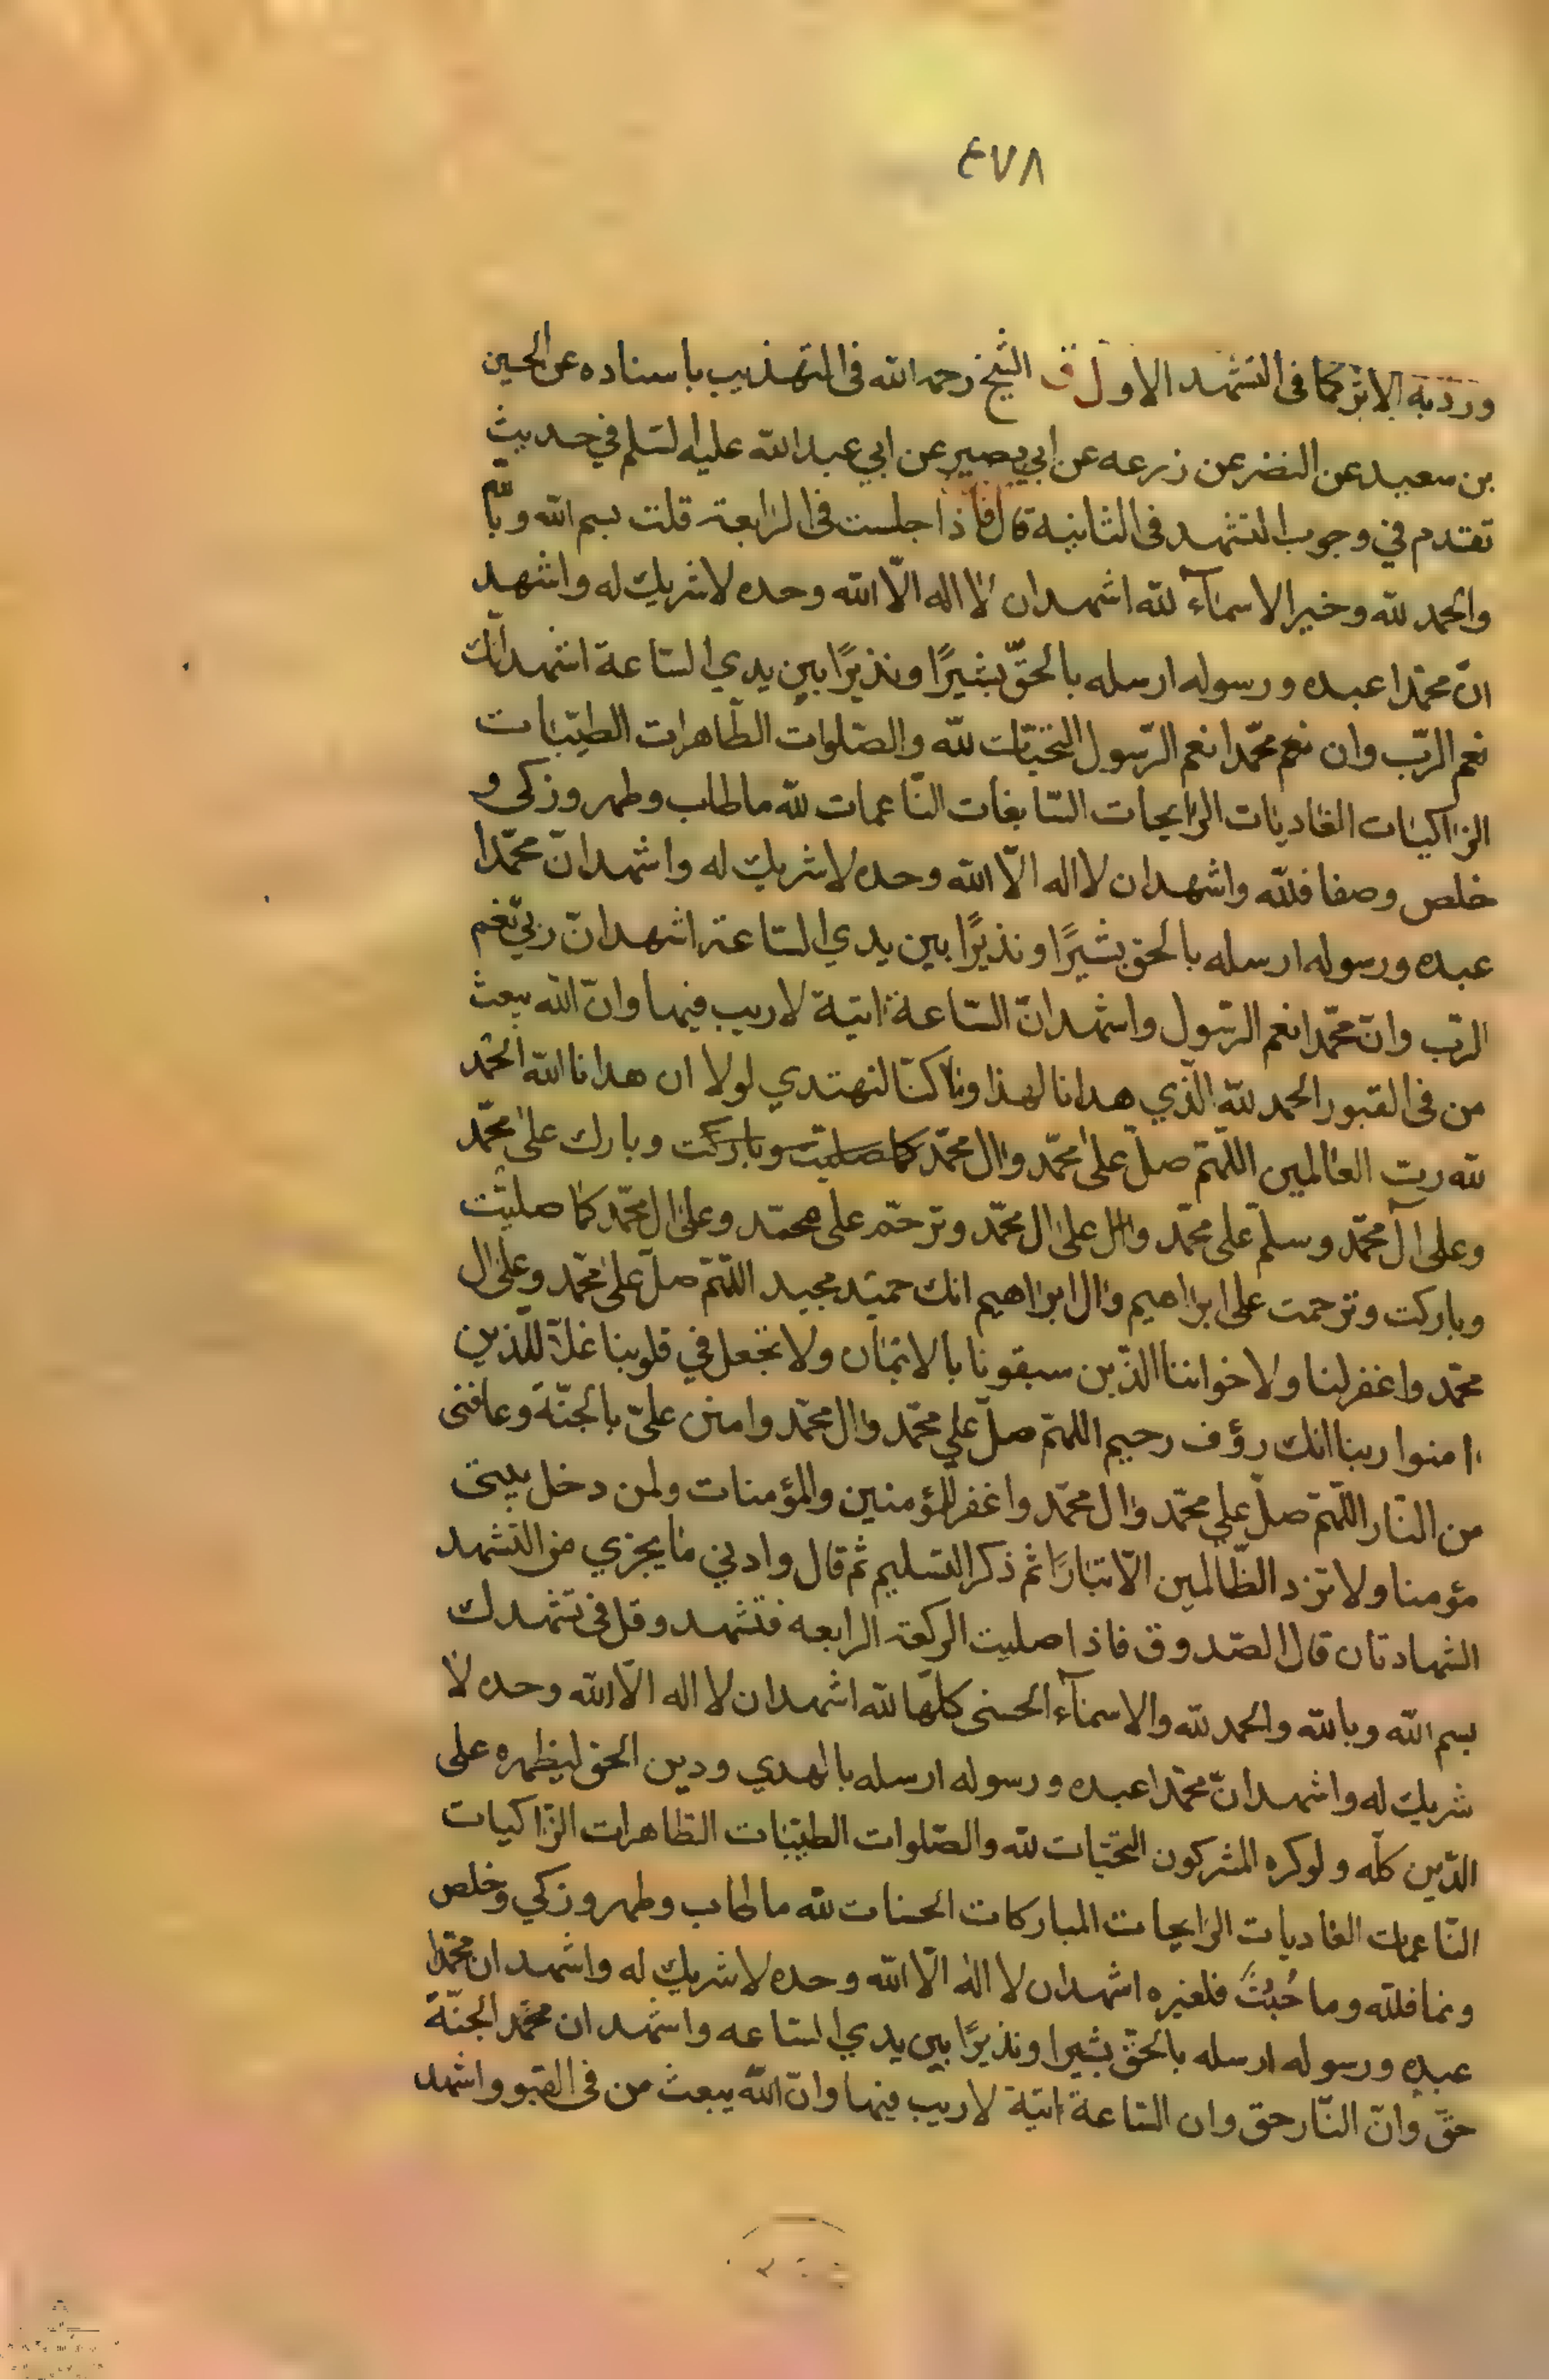 ٤٧٨
ورد به الاثر كما فى التشهد الاول ف الشيخ رحمه الله فى التهذيب باسناده عن الحسين
بن سعيد عن النضر عن زرعه عن ابي بصير عن ابي عبد الله عليه السلم في حديث
تقدم في وجوب التشهد فى الثانية قال فاذا جلست فى الرابعة قلت بسم الله وبالله
والحمد لله وخير الاسمآء لله اشهد ان لا اله الّا الله وحده لا شريك له واشهد
انّ محمّدا عبده ورسوله ارسله بالحقّ بشيرًا ونذيرًا بين يدي السّاعة اشهد انّك
نعم الربّ وان محمّدا نعم الرّسول التحيّات لله والصّلوات الطّاهرات الطيّبات
الزاكيات الغاديات الرايحات السّابغات النّاعمات لله ما طاب وطهر وزكى و
خلص وصفا فللّه واشهد ان لا اله الّا الله وحده لا شريك له واشهد انّ محمّدا
عبده ورسوله ارسله بالحق بشيرًا ونذيرًا بين يدي السّاعة اشهد انّ ربّي نعم
الربّ وانّ محمّدا نعم الرّسول واشهد انّ السّاعة اتية لا ريب فيها وانّ الله يبعث
من فى القبور الحمد لله الّذي هدانا لهذا وما كنّا لنهتدي لولا ان هدانا الله الحمد
لله ربّ العالمين اللّهمّ صلّ على محمّد وال محمّد كما صليت وباركت وبارك على محمّد
وعلى آل محمّد وسلّم على محمّد وعلى ال محمّد وترحّم على محمّد وعلى ال محمّد كما صليت
وباركت وترحمت على ابراهيم وال ابراهيم انك حميد مجيد اللّهمّ صلّ على محمّد وعلى ال
محمّد واغفر لنا ولاخواننا الذّين سبقونا بالايمان ولا تجعل في قلوبنا غلّا للّذين
امنوا ربنا انك رؤف رحيم اللهمّ صلّ علي محمّد وال محمّد وامنن عليّ بالجنّة وعافنى
من النّار اللّهمّ صلّ علي محمّد وال محمّد واغفر للمؤمنين والمؤمنات ولمن دخل بيتى
مؤمنا ولا تزد الظّالمين الّا تبارًا ثم ذكر التسليم ثم قال وادني ما يجزي من التّشهد
الشهادتان قال الصّدوق فاذا صليت الركعة الرابعه فتشهد وقل فى تشهدك
بسم الله وبالله والحمد لله والاسمآء الحسنى كلّها لله اشهد ان لا اله الّا الله وحده لا
شريك له واشهد انّ محمّدا عبده ورسوله ارسله بالهدي ودين الحق ليظهره على
الدّين كلّه ولو كره المشركون التحّيات لله والصّلوات الطيّبات الطّاهرات الزّاكيات
النّاعمات الغاديات الرايحات المباركات الحسنات لله ما طاب وطهر وزكي وخلص
ونما فللّه وما خبُث فلغيره اشهد ان لا اله الّا الله وحده لا شريك له واشهد ان محمّدا
عبده ورسوله ارسله بالحقّ بشيرا ونذيرًا بين يدي السّاعه واشهد ان الجنّة
حقّ وانّ النّار حق وان السّاعة اتية لا ريب فيها وانّ اللّه يبعث من فى القبور واشهد